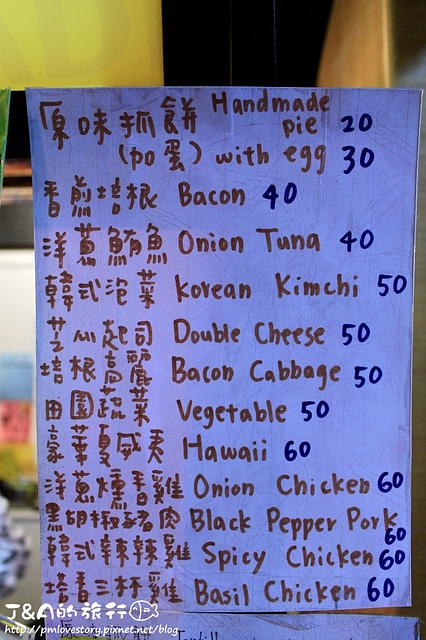 原味抓餅 Handmade pie 20
(加蛋) with egg 30
香煎培根 Bacon 40
洋蔥鮪魚 Onion Tuna 40
韓式泡菜 Korean Kimchi 50
芝心起司 Double Cheese 50
培根高麗 Bacon Cabbage 50
田園蔬菜 Vegetable 50
豪華夏威夷 Hawaii 60
洋蔥燻香雞 Onion Chicken 60
黑胡椒豬肉 Black Pepper Pork 60
韓式辣辣雞 Spicy Chicken 60
塔香三杯雞 Basil Chicken 60
J&A的旅行
http://pmlovestory.pixnet.net/blog